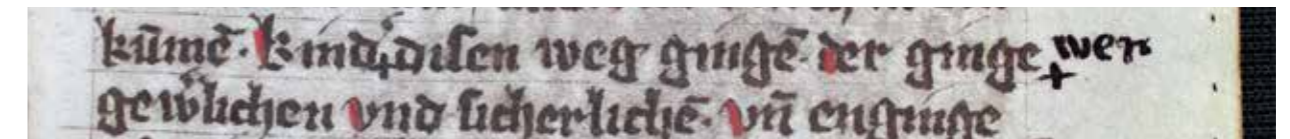 kūmē. kind᾽+disen weg gingē. der ginge +wer
gew᾽lichen vnd sicherlichē. vn̄ enginge